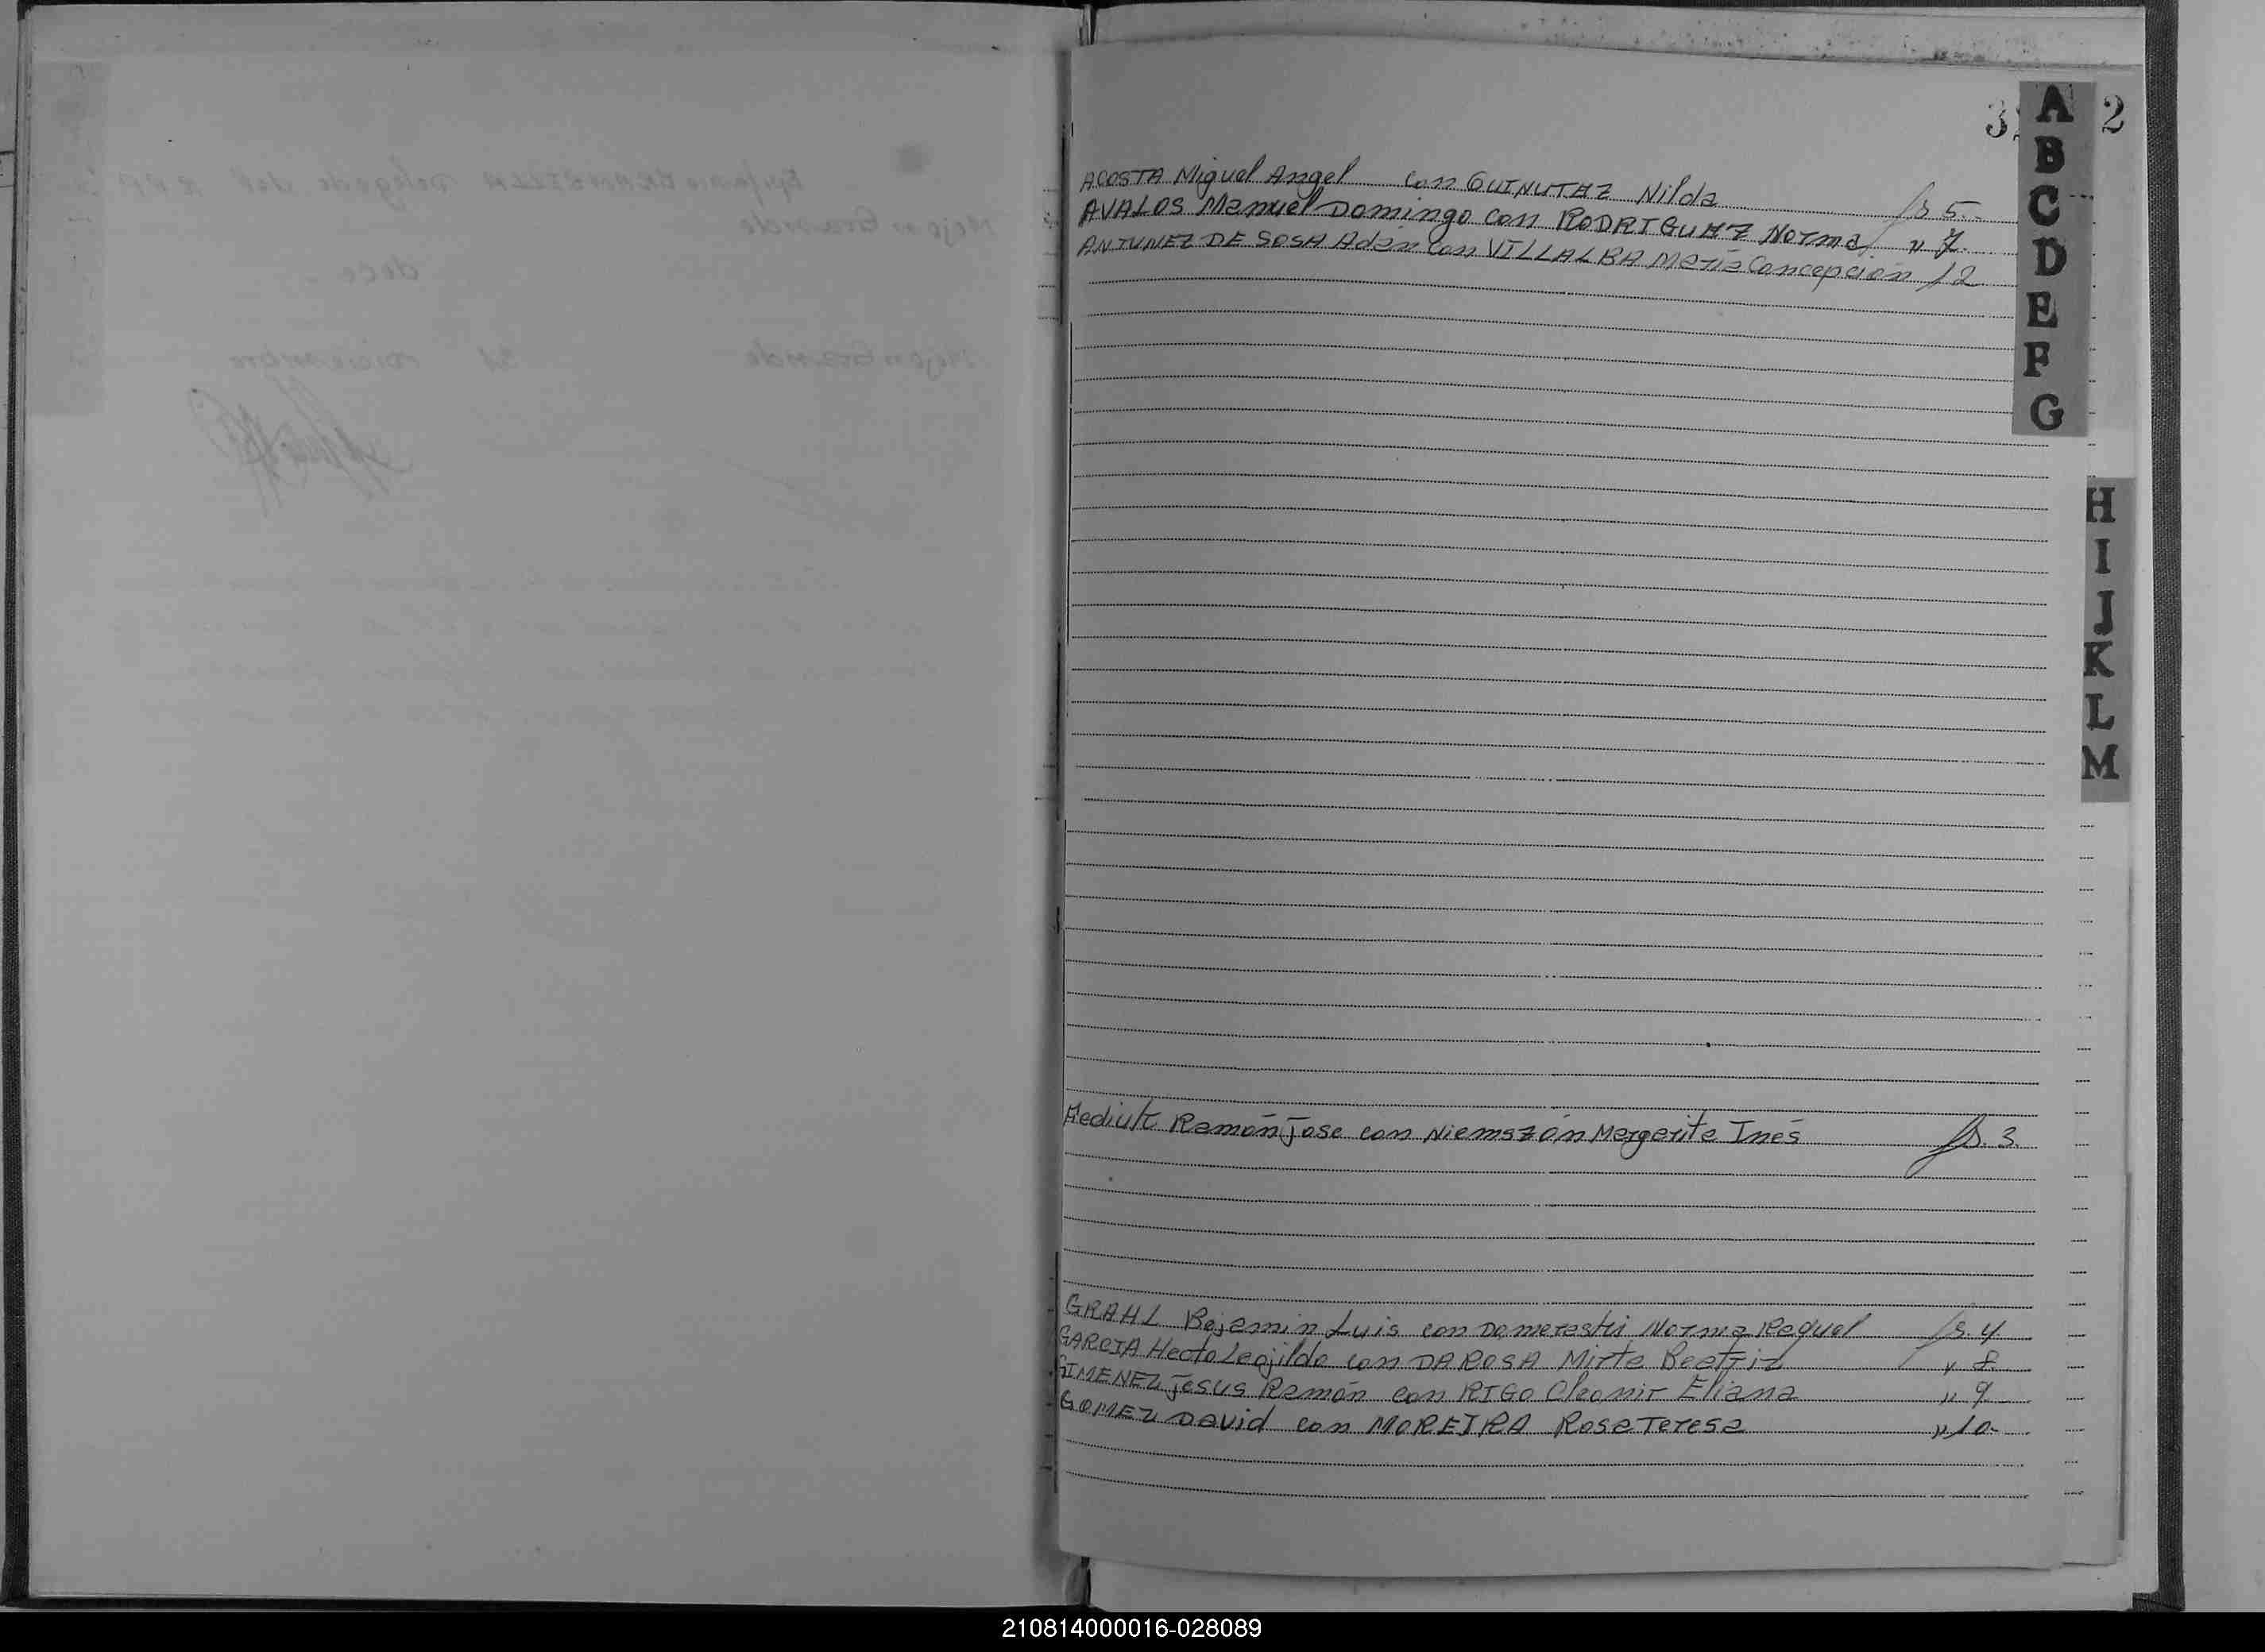 3 2
A
B
C
D
E
F
G
ACOSTA Miguel Angel con GUINUTHZ Nilda fs 5.
AVALOS Manuel Domingo con RODRIGUHZ Norma " 7.
ANTUNEZ DE SOSA Adán con VILLALBA Maria Concepción 12
H
I
J
K
L
M
Fediuk Ramón Jose con Niemszón Margarita Inés fs. 3.
GRAHL Bejamin Luis con Domerastki Norma Raquel fs. 4.
GARCIA Hecto Leojildo con DA ROSA Mirta Beatriz " 8.
GIMENEZ Jesus Ramón con RIGO Cleonir Eliana " 9.
GOMEZ David con MOREIRA Rosa Teresa " 10.
210814000016-028089